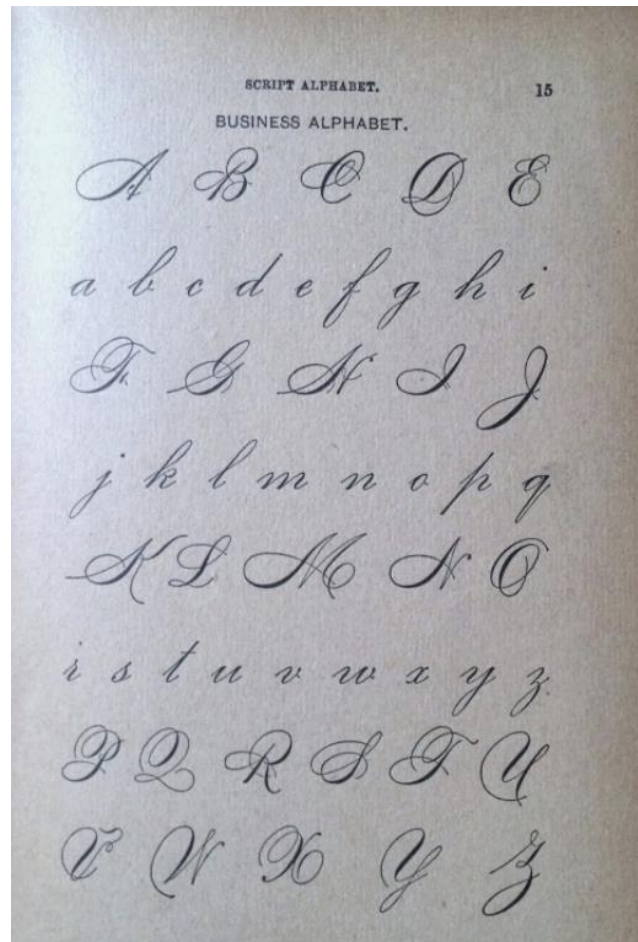 SCRIPT ALPHABET. 15
BUSINESS ALPHABET.
A B C D E
a b c d e f g h i
F G H I J
j k l m n o p q
K L M N O
r s t u v w x y z
P Q R S T U
V W X Y Z